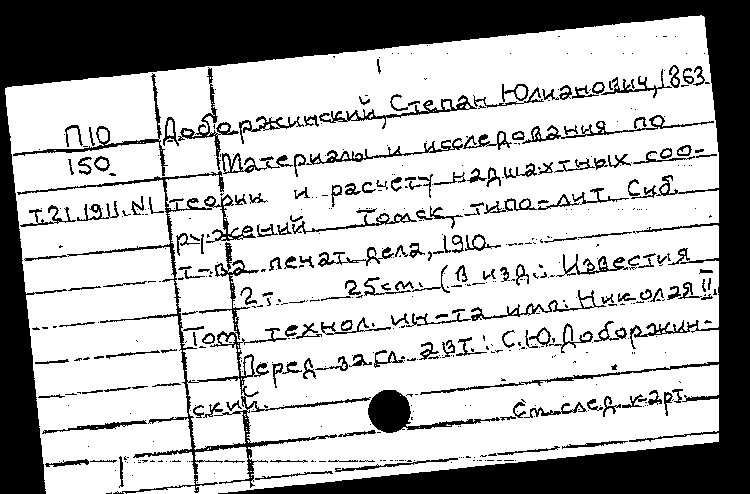 П10 Доборжинский, Степан Юлианович, 1863
150. Материалы и исследования по
т.21.1911.N1 теории и расчету надшахтных соо-
ружений. Томск, типо-лит. Сиб.
т-ва печат. дела, 1910.
2т. 25см. (В изд.: Известия
Том. технол. ин-та имп. Николая II.
Перед загл. авт.: С.Ю. Доборжин-
ский.
См след карт.